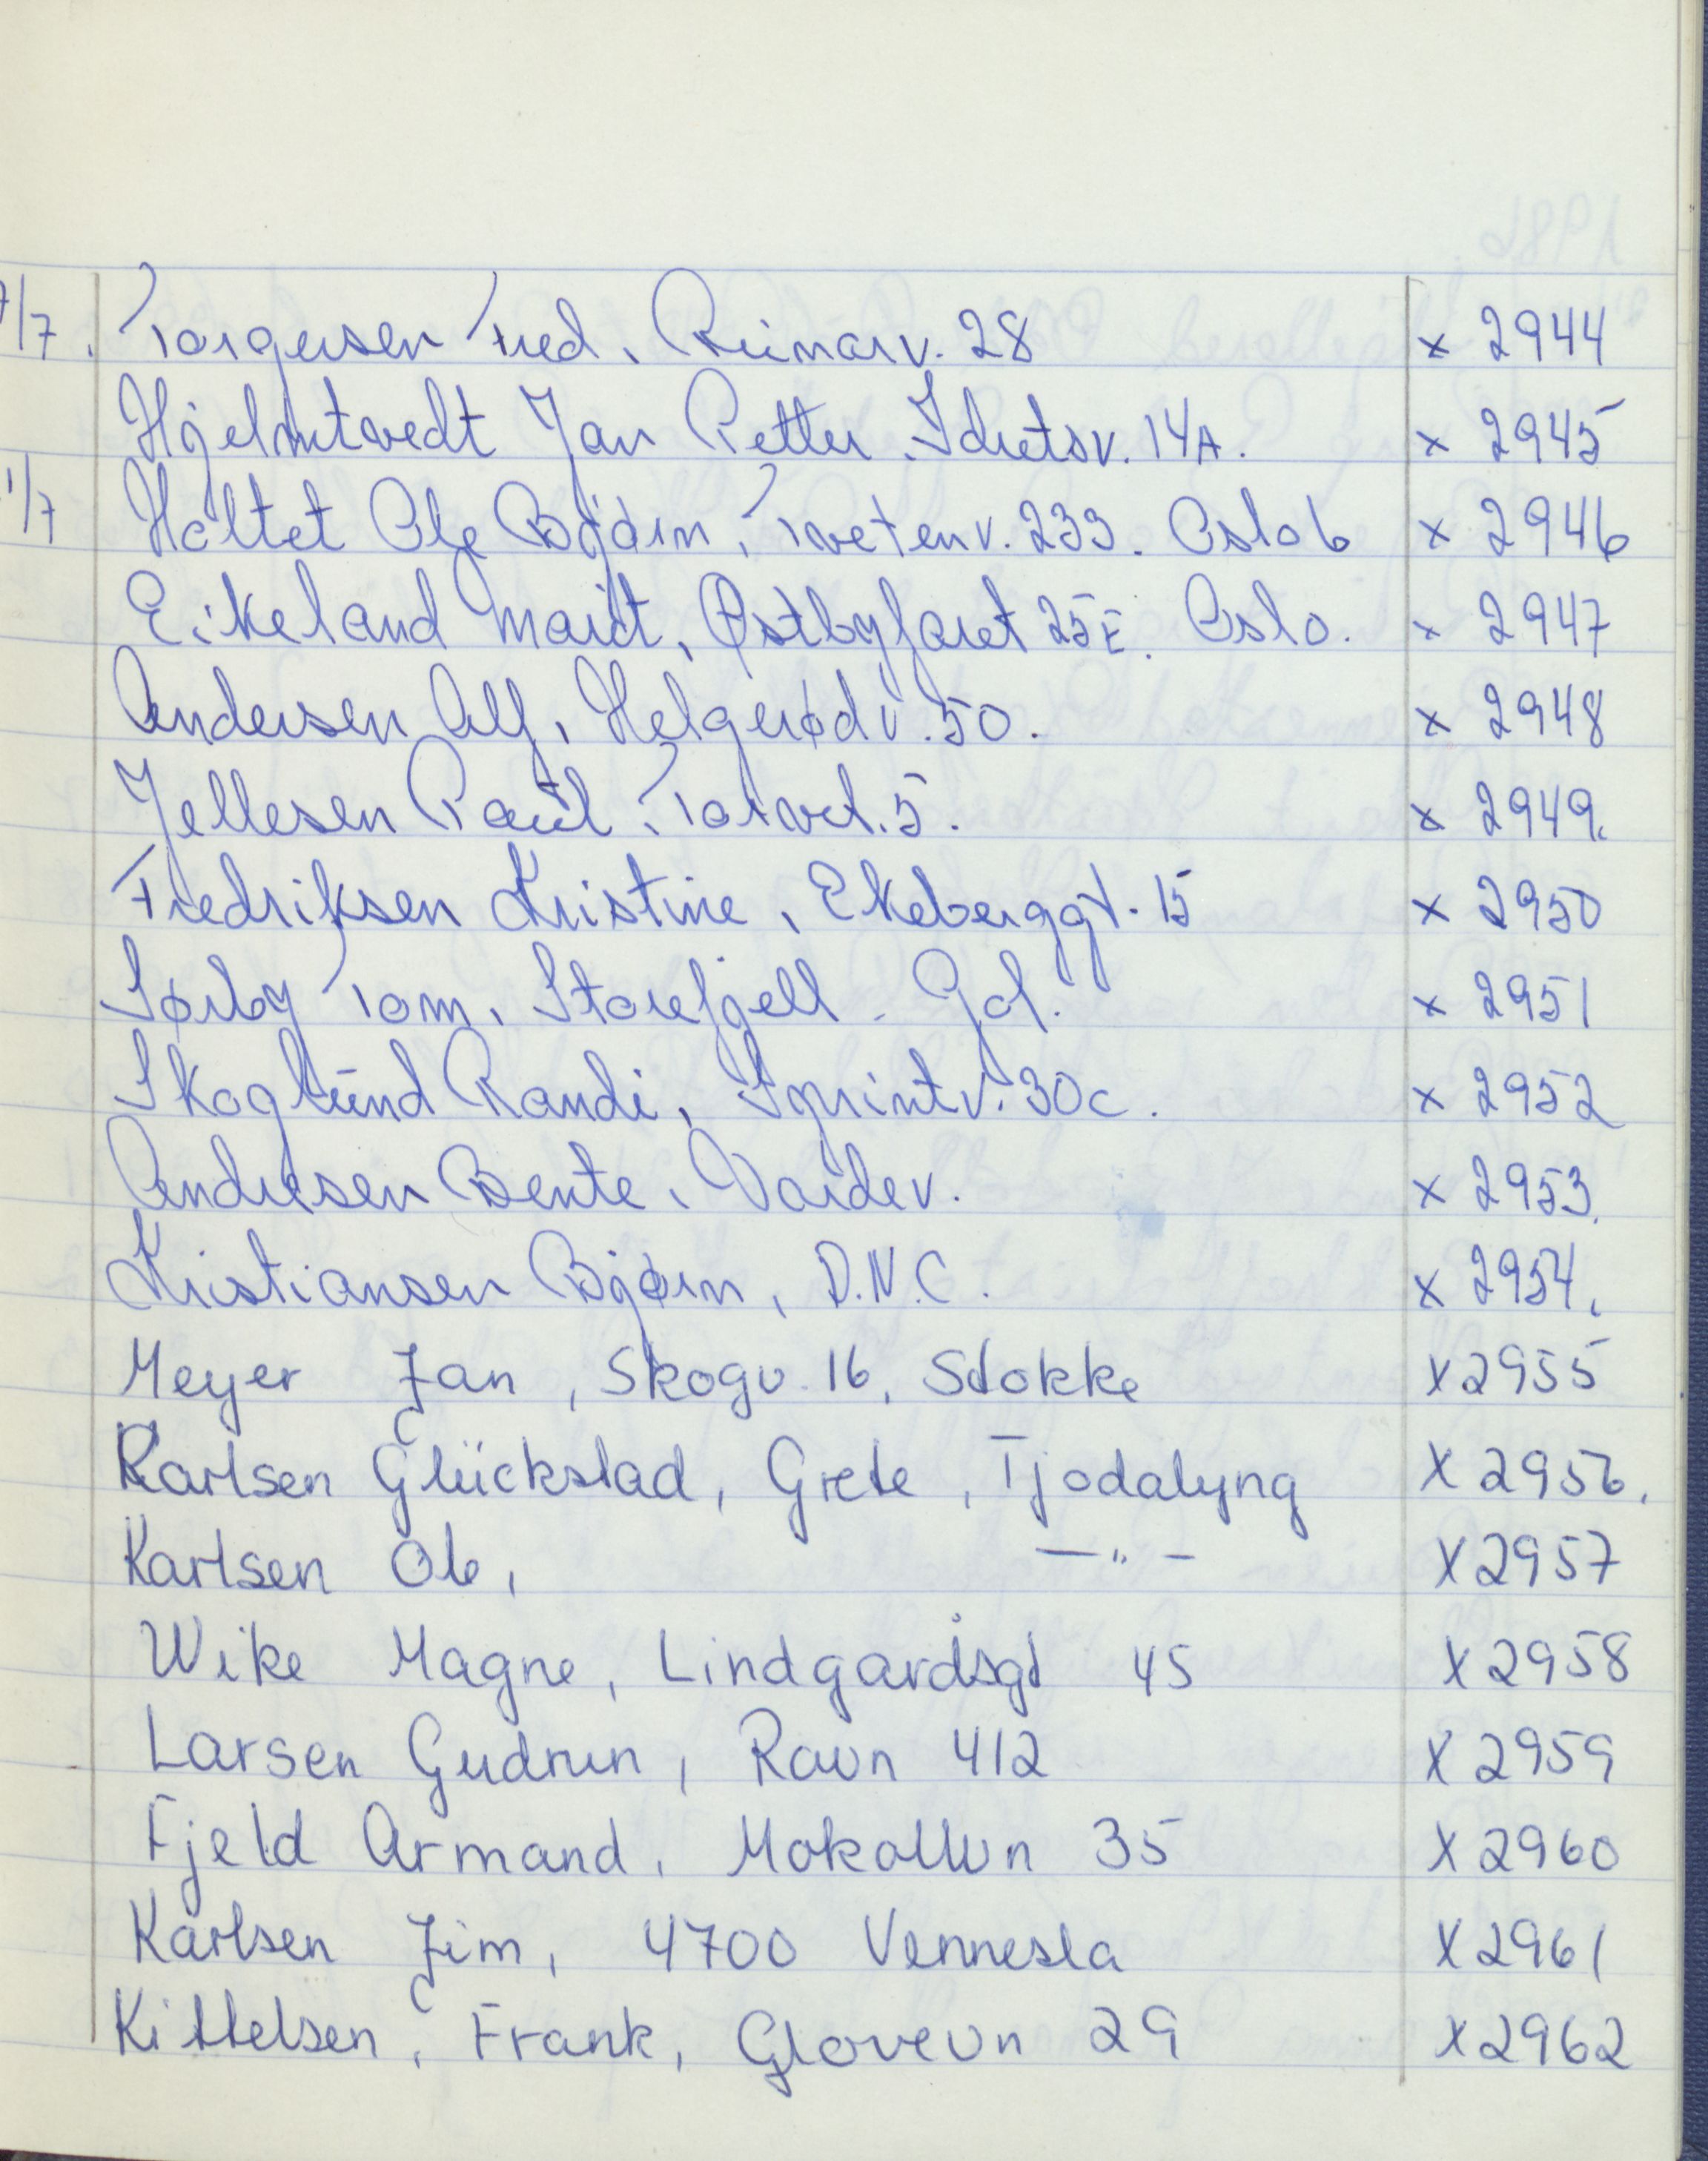 /7. Torgersen Fred, Reimarv. 28 x 2944
Hjelmtvedt Jan Petter. Idretsv. 14A. x 2945
1/7 Holtet Ole Bjørn, Tvetenv. 233. Oslo 6 x 2946
Eikeland Marit, Østbyfaret 25E. Oslo. x 2947
Andersen Alf, Helgerødv. 50. x 2948
Jellesen Paul, Torvet. 5. x 2949.
Fredriksen Kristine, Ekeberggt. 15 x 2950
Sørby Tom, Storefjell. Gol. x 2951
Skoglund Randi, Sprintv. 30c. x 2952
Andresen Bente, Vardev. x 2953.
Kristiansen Bjørn, D.N.C. x 2954.
Meyer Jan, Skogv. 16, Stokke x 2955
Karlsen Glückstad, Grete, Tjodalyng x 2956.
Karlsen Ole, —"— x 2957
Wike Magne, Lindgårdsgt 45 x 2958
Larsen Gudrun, Ravn 412 x 2959
Fjeld Armand, Mokollvn 35 x 2960
Karlsen Jim, 4700 Vennesla x 2961
Kittelsen, Frank, Glovevn 29 x 2962